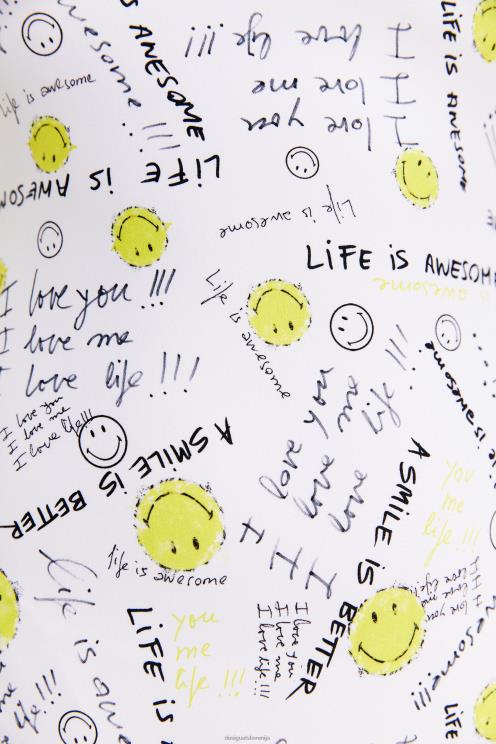 LiFE is AWESOME
awesome
is ANESOME
!!!
I love life !!!
I love me
I love you
life is awesome
LiFE iS AWESOM
life is awesome
LiFE iS AWESOME
is awesome
Life is awesome
I love you !!!
I love me
I love life !!!
I love you
I love me
I love life!!!
is awesome
love you
love me
love life !!!
I
I
I
A SMiLE iS BETTER
A SMiLE iS BETTER
you
me
life !!!
life is awesome
I love you
I love me
I love life!!!
life is awe
LiFE is
you
me
life !!!
I love you
I love me
I love life !!!
awesome!!!
life !!!
LiFE
desigualslovenija